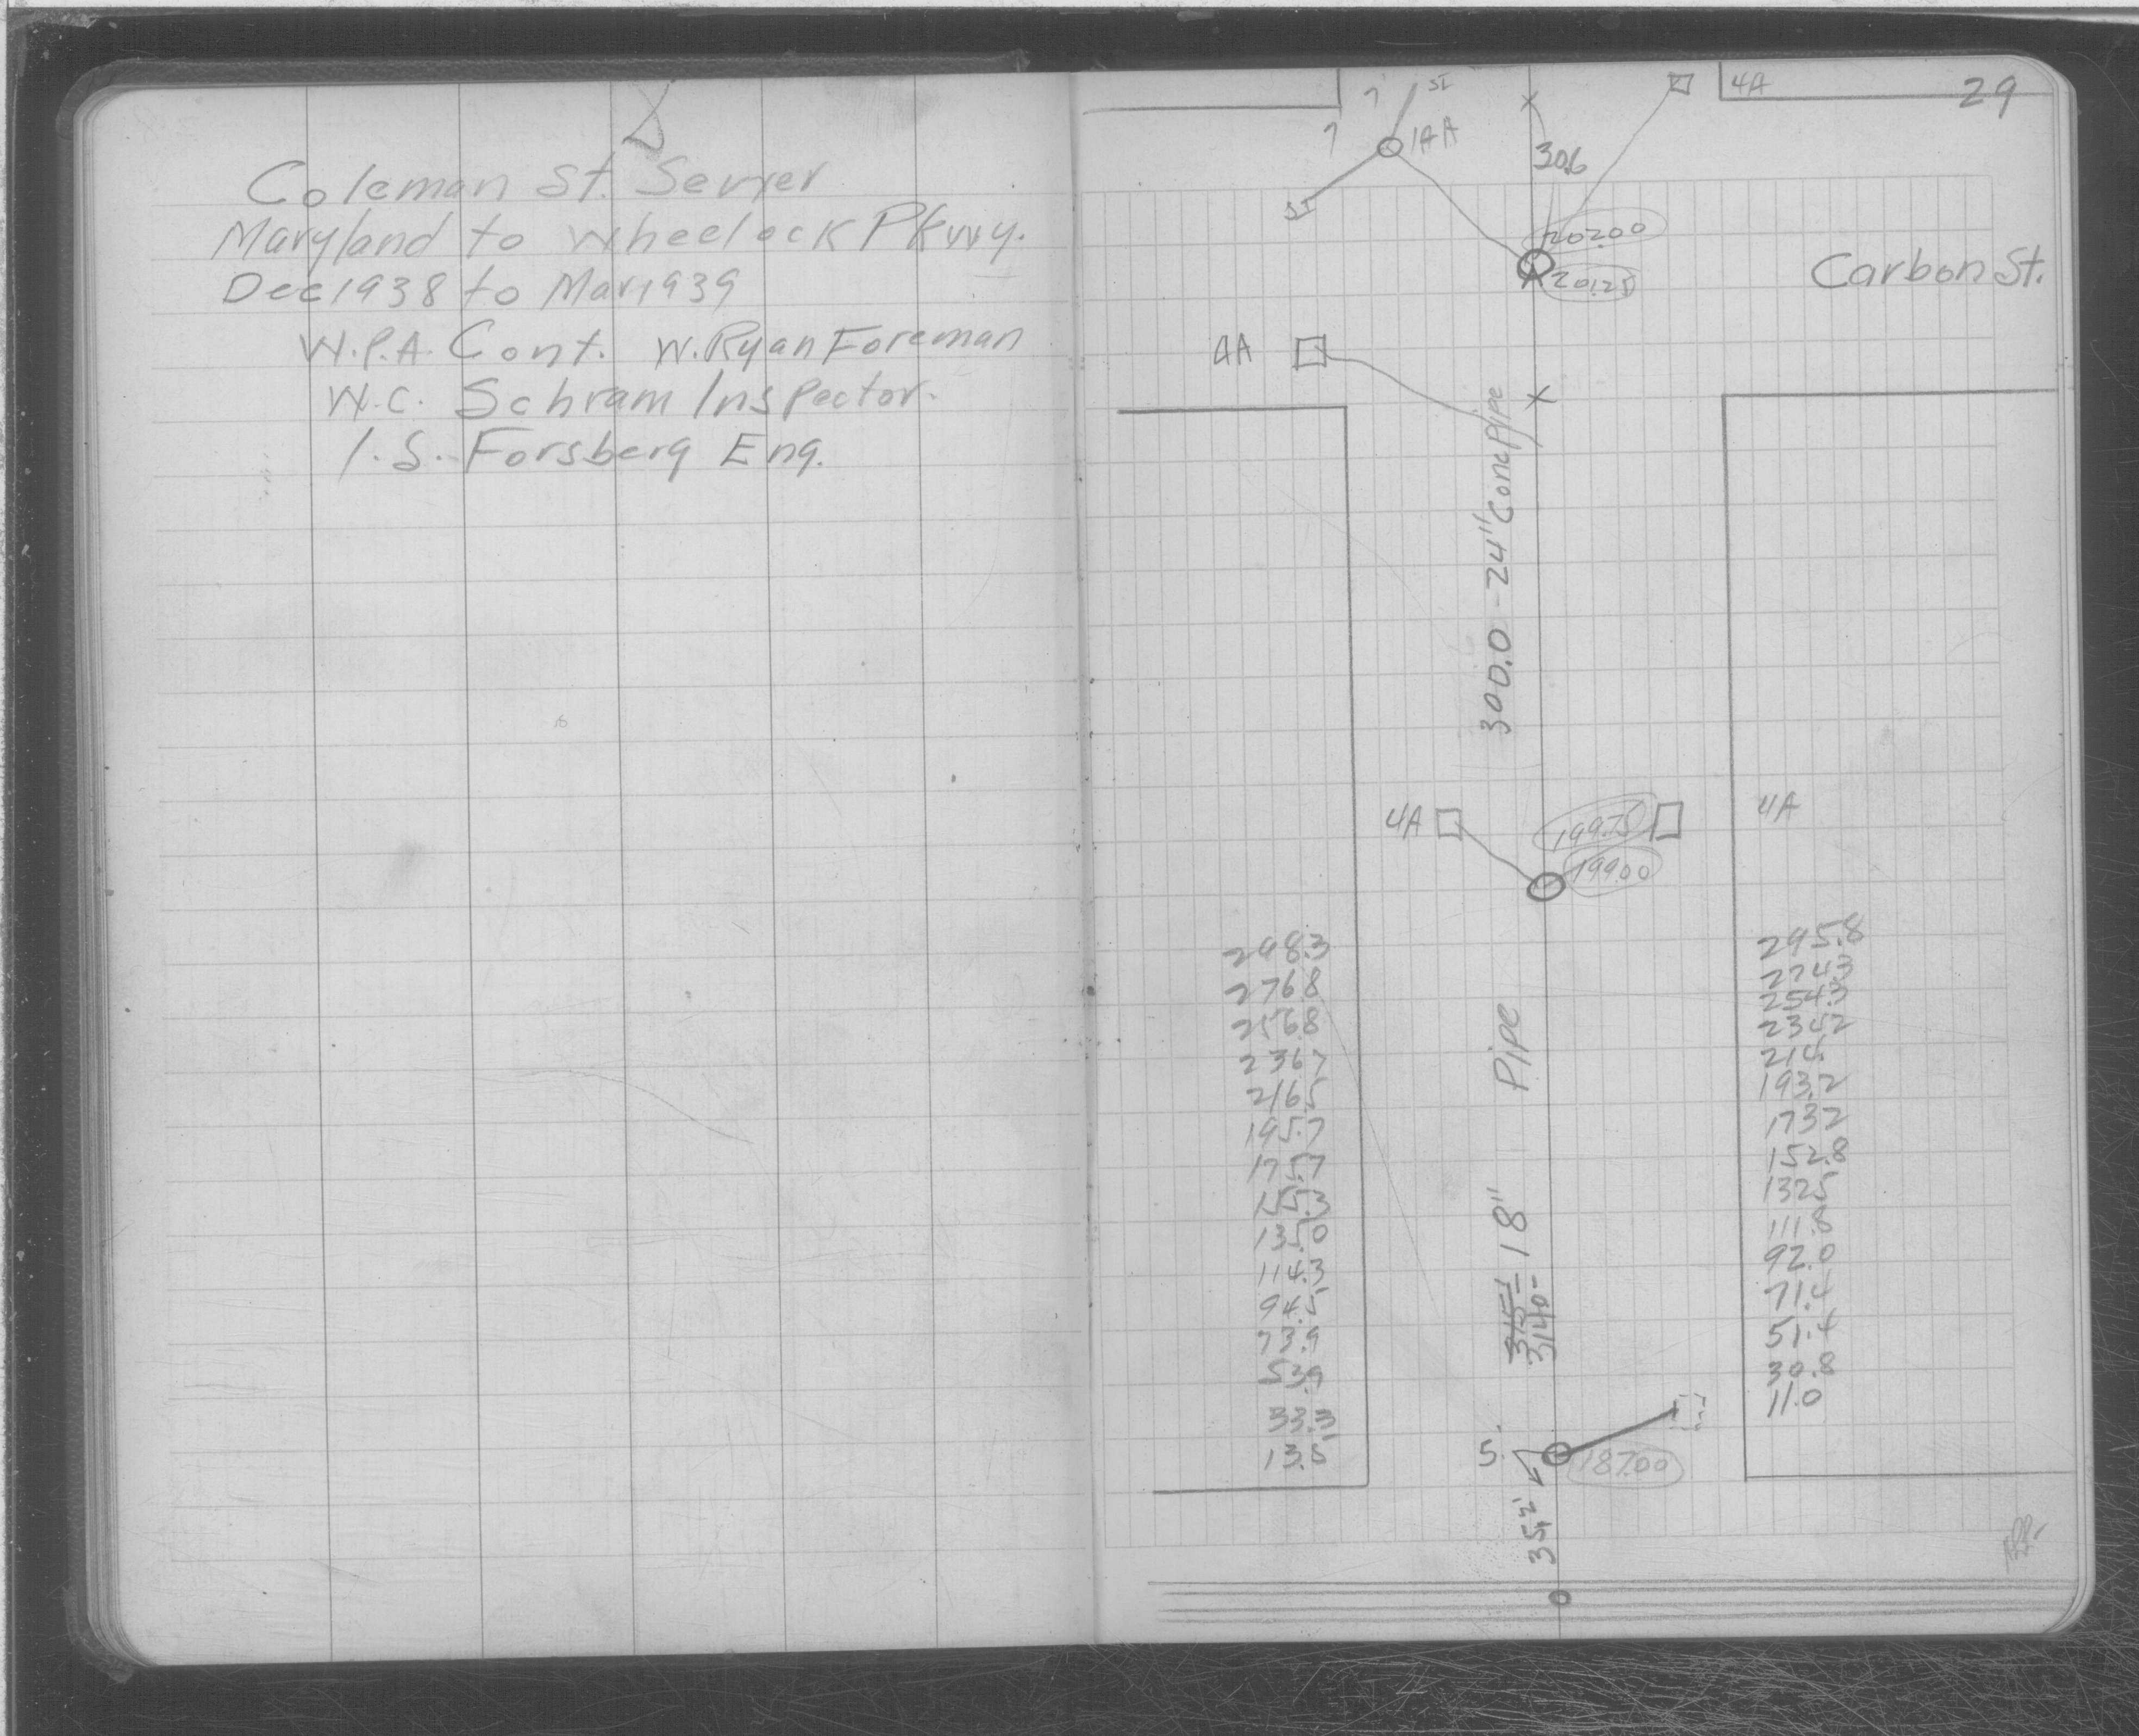 Coleman St. Sewer
Maryland to Wheelock Pkwy.
Dec 1938 to Mar 1939
W.P.A. Cont. W. Ryan Foreman
W.C. Schram Inspector.
I.S. Forsberg Eng.
29
4A
1AA
30.6
202.00
201.25
Carbon St.
4A
300.0 - 24" Conc Pipe
4A
199.75
4A
199.00
298.3
276.8
256.8
236.7
216.5
195.7
175.7
155.3
135.0
114.3
94.5
73.9
53.9
33.3
13.5
295.8
274.3
254.3
234.2
214.
193.2
173.2
152.8
132.5
111.8
92.0
71.4
51.4
30.8
11.0
315 - 18" Pipe
314.0-
5.
187.00
35.2'